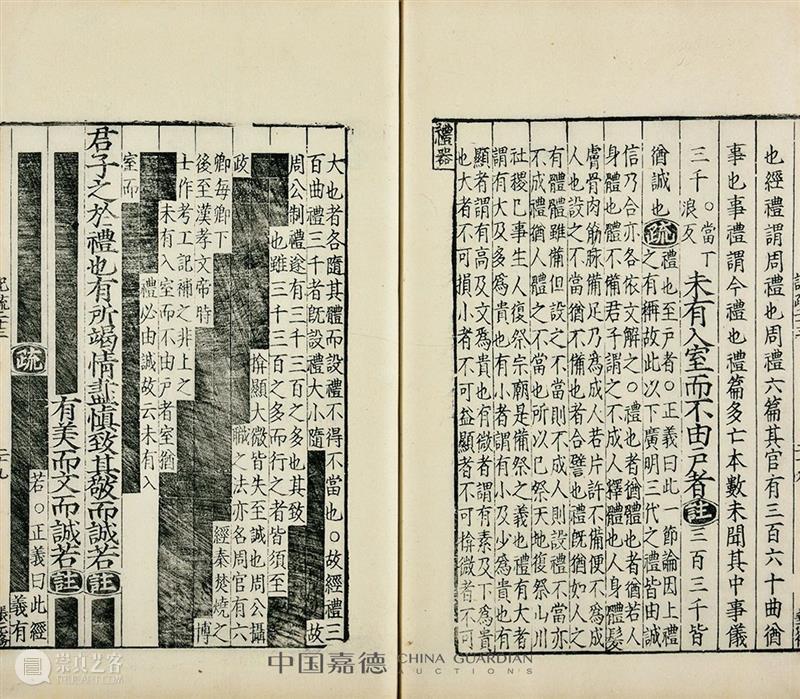 也經禮謂周禮也周禮六篇其官有三百六十曲猶
事也事禮謂今禮也禮篇多亡本數未聞其中事儀
三千〇當丁浪反未有入室而不由户者註三百三千皆
猶誠也疏禮也至户者〇正義曰此一節論因上禮
之有稱故此以下廣明三代之禮皆由誠
信乃合亦各依文解之〇禮也者猶體也者猶若人
身體也體不備君子謂之不成人釋體也人身體髮
膚骨肉筋脉備足乃為成人若片許不備便不為成
人也設之不當猶不備也者合譬也禮旣猶如人之
有體體雖備但設之不當則不成人則設禮不當亦
不成禮猶人體之不當也所以巳祭天地復祭山川
社稷巳事生人復祭宗廟是備祭之義也禮有大者
謂有大及多為貴也有小者謂有小及少為貴也有
顯者謂有高及文為貴也有微者謂有素及下為貴
也大者不可損小者不可益顯者不可揜微者不可
禮器
大也者各隨其體而設禮不得不當也〇故經禮三
百曲禮三千者旣設禮大小隨 故
周公制禮遂有三千三百之多也其致
也雖三千三百之多而行之者皆須至
揜顯大微皆失至誠也周公攝
政 職之法亦名周官有六
卿每卿下 經秦焚燒之
後至漢孝文帝時 博
士作考工記補之非上之
未有入室而不由户者室猶
禮必由誠故云未有入
室而
君子之於禮也有所竭情盡慎致其敬而誠若註
有美而文而誠若註
疏 若〇正義曰此經
義有
崇真艺客
中国嘉德 CHINA GUARDIAN
AUCTIONS